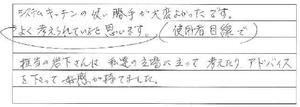 システムキッチンの使い勝手が大変よかったです。
よく考えられていると思います。(使用者目線で)
担当の岩下さんは私達の立場に立って考えたり、アドバイス
を下さって好感が持てました。